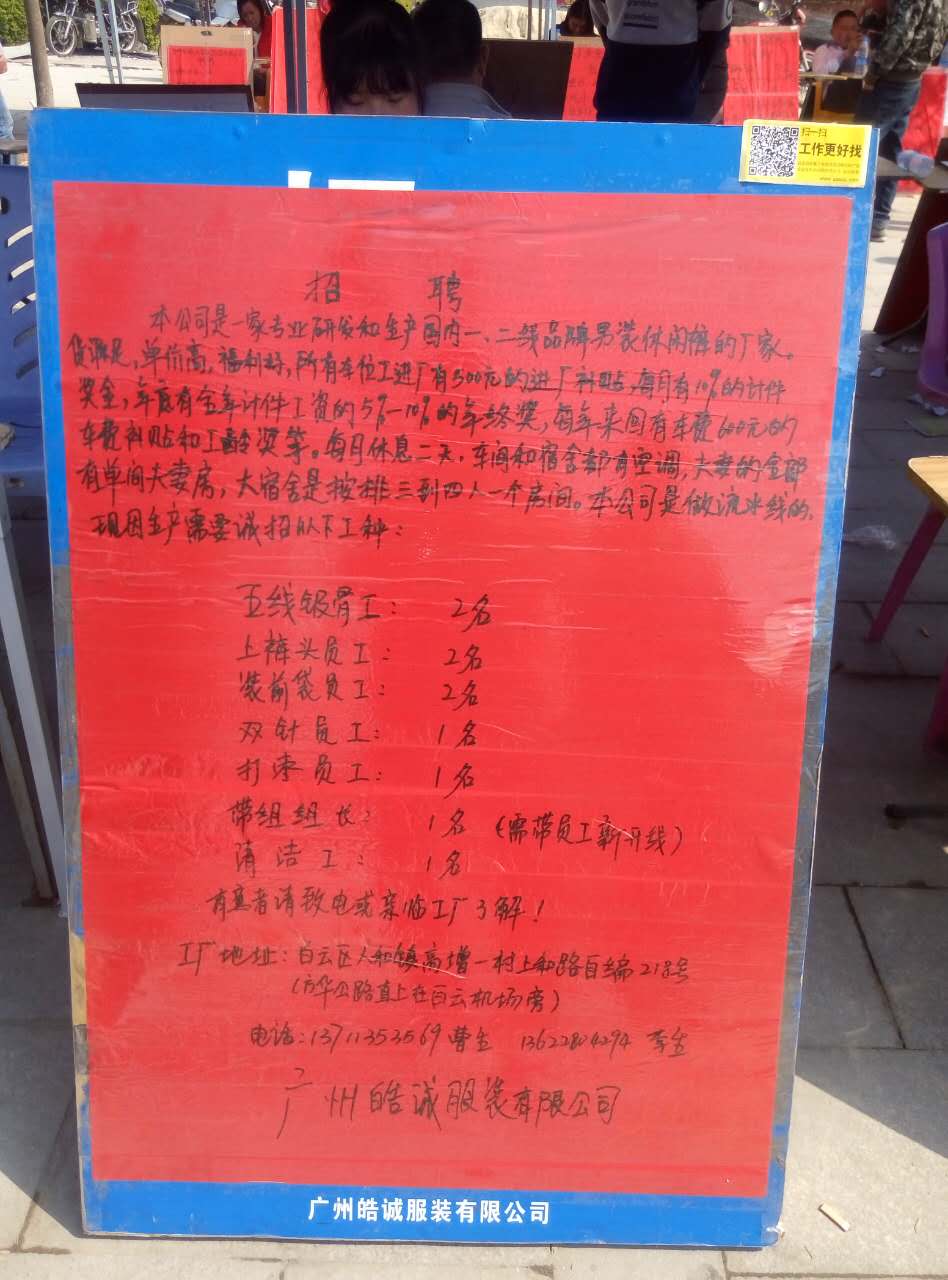 扫一扫
工作更好找
招 聘
本公司是一家专业研发和生产国内一、二线品牌男装休闲裤的厂家。
货源足,单价高,福利好,所有车位工进厂有300元的进厂补贴,每月有10%的计件
奖金,年底有全年计件工资的5%-10%的年终奖,每年来回有车费600元的
车费补贴和工龄奖等。每月休息二天,车间和宿舍都有空调,夫妻的全部
有单间夫妻房,大宿舍是按排三到四人一个房间。本公司是做流水线的,
现因生产需要诚招以下工种:
五线钑骨工: 2名
上裤头员工: 2名
装前袋员工: 2名
双针员工: 1名
打枣员工: 1名
带组组长: 1名 (需带员工新开线)
清洁工: 1名
有意者请致电或亲临工厂了解!
工厂地址:白云区人和镇高增一村上和路自编218号
(方华公路直上在白云机场旁)
电话:13711353569 曹生 13622804294 李生
广州皓诚服装有限公司
广州皓诚服装有限公司